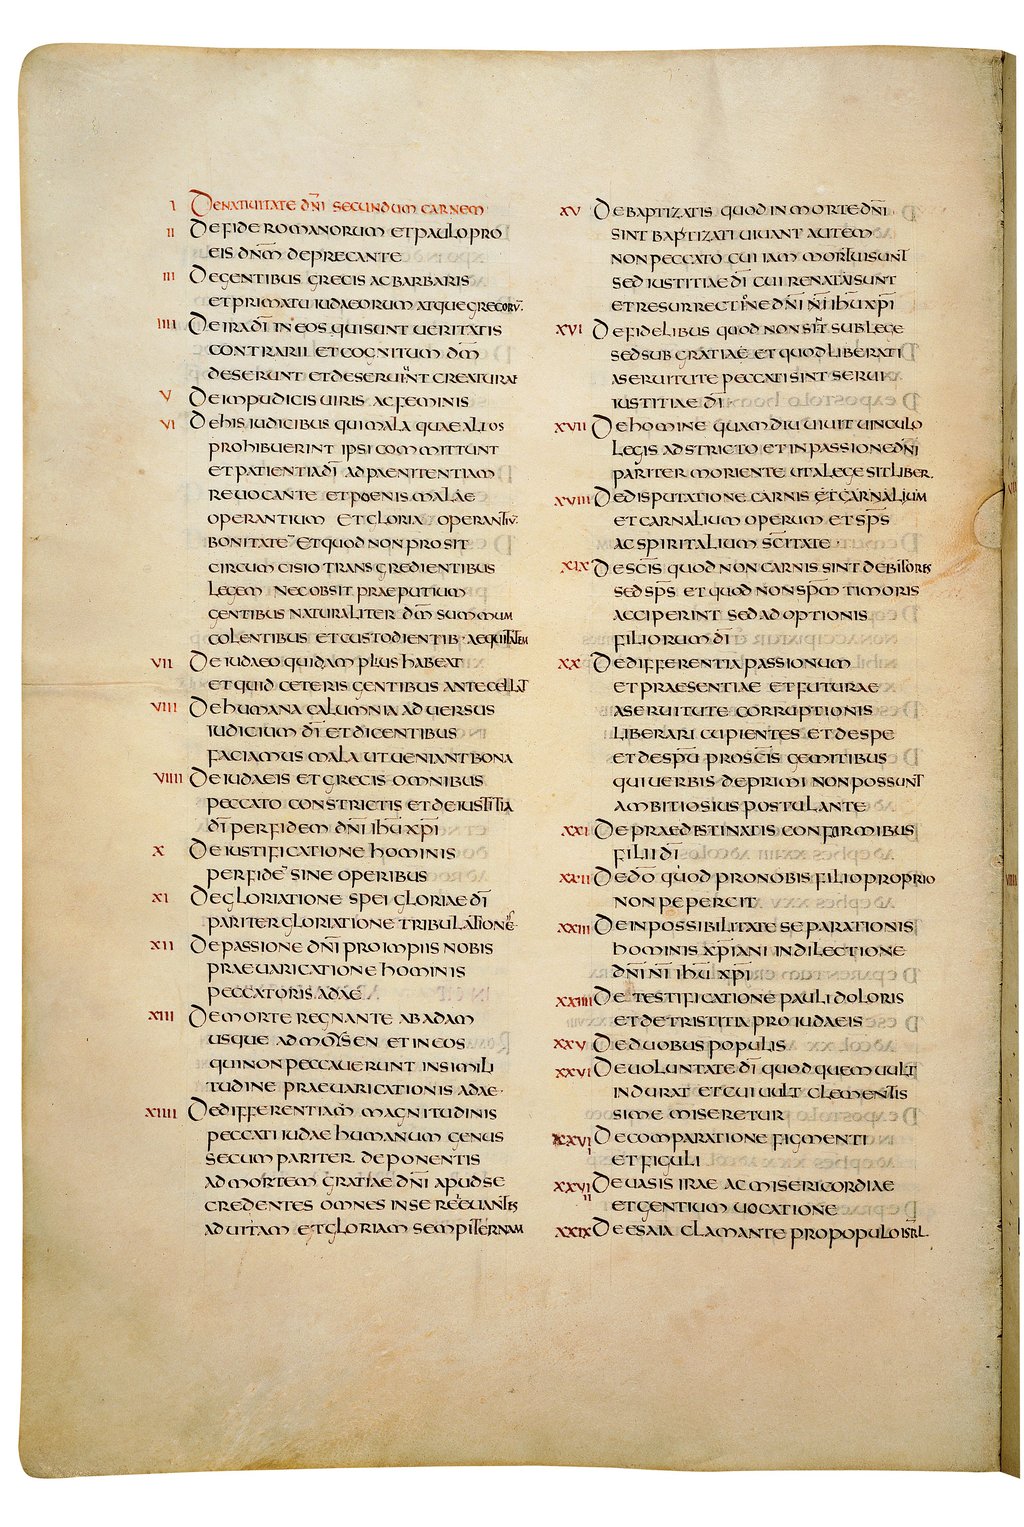 I DE NATIUITATE DNI SECUNDUM CARNEM
II DE FIDE ROMANORUM ET PAULO PRO
EIS DNM DEPRECANTE
III DE GENTIBUS GRECIS AC BARBARIS
ET PRIMATU IUDAEORUM ATQUE GRECORU
IIII DE IRA DI IN EOS QUI SUNT UERITATIS
CONTRARII ET COGNITUM DM
DESERUNT ET DESERUIUNT CREATURAE
V DE IMPUDICIS UIRIS AC FEMINIS
VI DE HIS IUDICIBUS QUI MALA QUAE ALIOS
PROHIBUERINT IPSI COMMITTUNT
ET PATIENTIA DI AD PAENITENTIAM
REUOCANTE ET POENIS MALAE
OPERANTIUM ET GLORIA OPERANTIU
BONITATE ET QUOD NON PROSIT
CIRCUMCISIO TRANSGREDIENTIBUS
LEGEM NEC OBSIT PRAEPUTIUM
GENTIBUS NATURALITER DM SUMMUM
COLENTIBUS ET CUSTODIENTIB· AEQUITATEM
VII DE IUDAEO QUIDAM PLUS HABEAT
ET QUID CETERIS GENTIBUS ANTECELLAT
VIII DE HUMANA CALUMNIA ADUERSUS
IUDICIUM DI ET DICENTIBUS
FACIAMUS MALA UT UENIANT BONA
VIIII DE IUDAEIS ET GRECIS OMNIBUS
PECCATO CONSTRICTIS ET DE IUSTITIA
DI PER FIDEM DNI IHU XPI
X DE IUSTIFICATIONE HOMINIS
PER FIDE SINE OPERIBUS
XI DE GLORIATIONE SPEI GLORIAE DI
PARITER GLORIATIONE TRIBULATIONE
XII DE PASSIONE DNI PRO IMPIIS NOBIS
PRAEUARICATIONE HOMINIS
PECCATORIS ADAE
XIII DE MORTE REGNANTE AB ADAM
USQUE AD MOYSEN ET IN EOS
QUI NON PECCAUERUNT IN SIMILI
TUDINE PRAEUARICATIONIS ADAE·
XIIII DE DIFFERENTIAM MAGNITUDINIS
PECCATI IUDAE HUMANUM GENUS
SECUM PARITER DEPONENTIS
AD MORTEM GRATIAE DNI APUD SE
CREDENTES OMNES IN SE
AD UITAM ET GLORIAM SEMPITERNAM
XV DE BAPTIZATIS QUOD IN MORTE DNI
SINT BAPTIZATI UIUANT AUTEM
NON PECCATO CUI IAM MORTUI SUNT
SED IUSTITIAE DI CUI RENATI SUNT
ET RESURRECTIONE DNI NI IHU XPI
XVI DE FIDELIBUS QUOD NON SIT SUB LEGE
SED SUB GRATIAE ET QUOD LIBERATI
A SERUITUTE PECCATI SINT SERUI
IUSTITIAE DI
XVII DE HOMINE QUAMDIU UIUIT UINCULO
LEGIS ADSTRICTO ET IN PASSIONE DNI
PARITER MORIENTE UT A LEGE SIT LIBER.
XVIII DE DISPUTATIONE CARNIS ET CARNALIUM
ET CARNALIUM OPERUM ET SPS
AC SPIRITALIUM SCITATE·
XIX DE SCIS QUOD NON CARNIS SINT DEBITORES
SED SPS ET QUOD NON SPM TIMORIS
ACCIPERINT SED ADOPTIONIS
FILIORUM DI
XX DE DIFFERENTIA PASSIONUM
ET PRAESENTIAE ET FUTURAE
A SERUITUTE CORRUPTIONIS
LIBERARI CUPIENTES ET DE SPE
ET DE SPU PRO SCIS GEMITIBUS
QUI UERBIS DEPRIMI NON POSSUNT
AMBITIOSIUS POSTULANTE
XXI DE PRAEDISTINATIS CONFIRMIBUS
FILII DI
XXII DE DO QUOD PRO NOBIS FILIO PROPRIO
NON PEPERCIT
XXIII DE INPOSSIBILITATE SEPARATIONIS
HOMINIS XPIANI IN DILECTIONE
DNI NI IHU XPI
XXIIII DE TESTIFICATIONE PAULI DOLORIS
ET DE TRISTITIA PRO IUDAEIS
XXV DE DUOBUS POPULIS
XXVI DE UOLUNTATE DI QUOD QUEM UULT
INDURAT ET CUI UULT CLEMENTIS
SIME MISERETUR
XXVII DE COMPARATIONE FIGMENTI
ET FIGULI
XXVIII DE UASIS IRAE AC MISERICORDIAE
ET GENTIUM UOCATIONE
XXIX DE ESAIA CLAMANTE PRO POPULO ISRL.